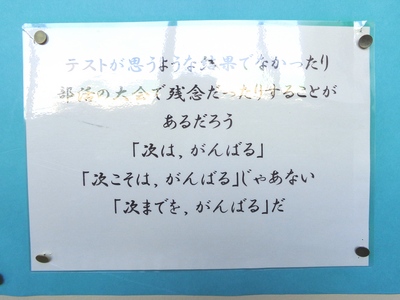 テストが思うような結果でなかったり
部活の大会で残念だったりすることが
あるだろう
「次は、がんばる」
「次こそは、がんばる」じゃあない
「次までを、がんばる」だ